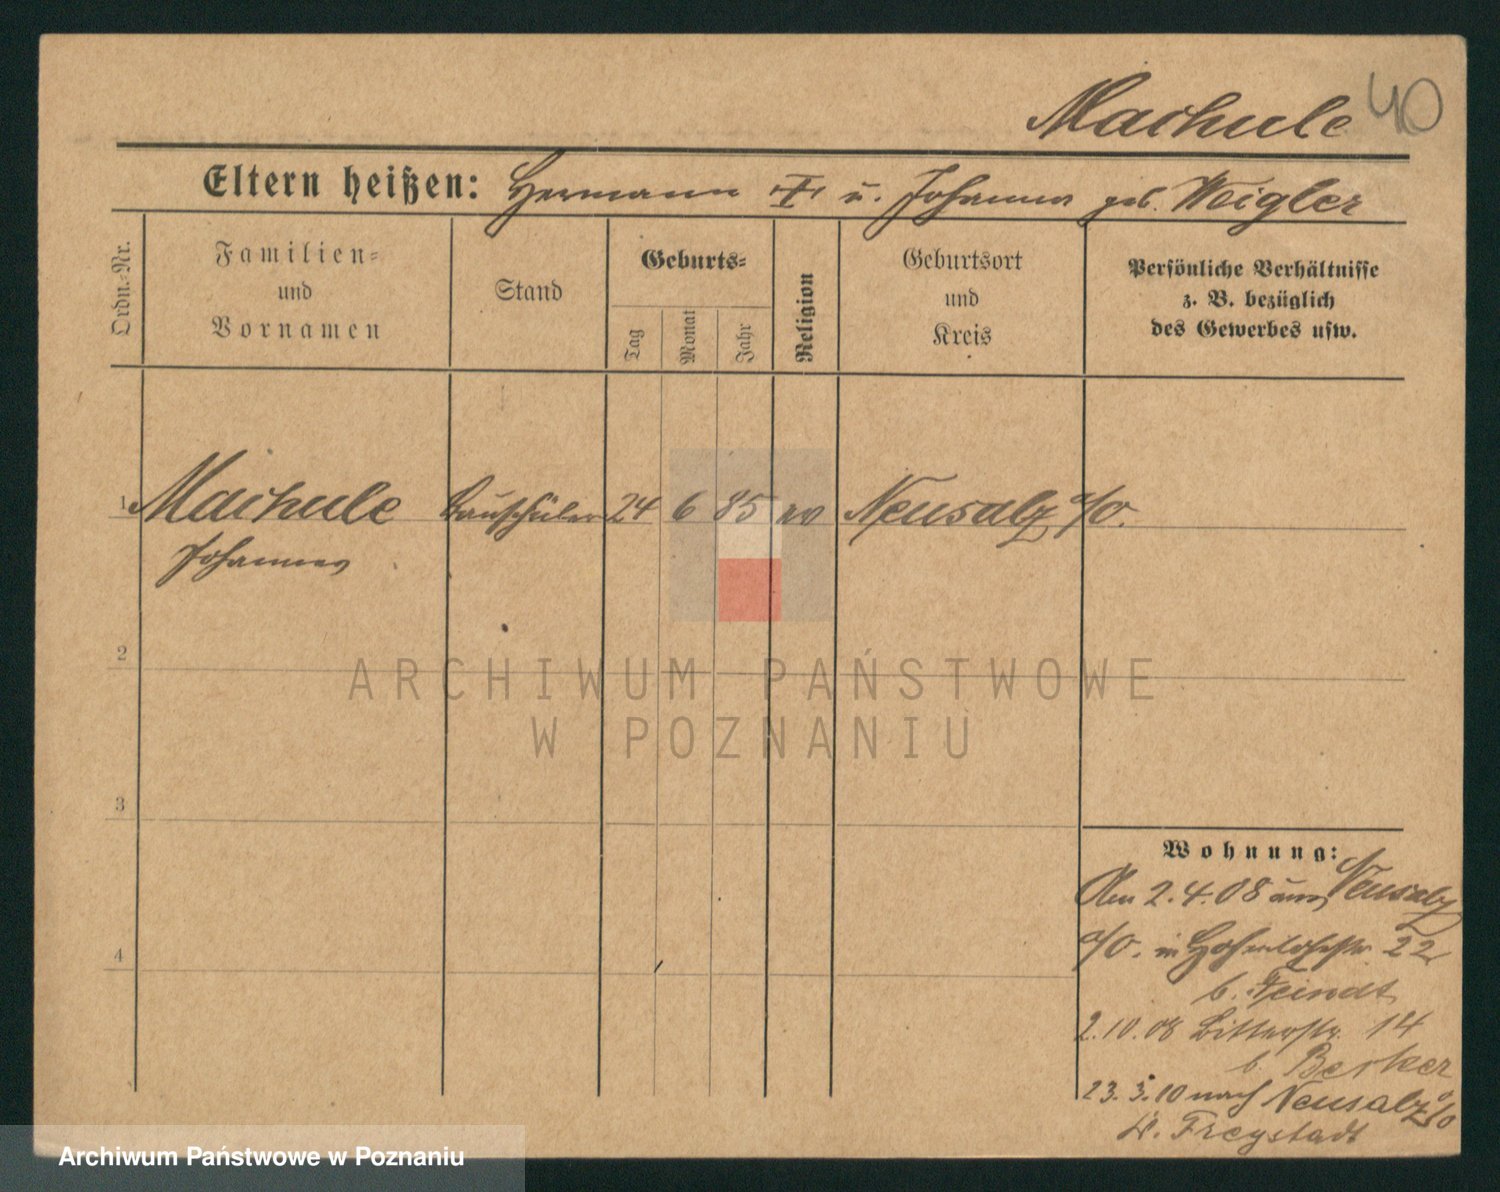 Machule 40
Eltern heißen: Hermann † u. Johanna geb. Weigler
Ordn.-Nr.
Familien=
und
Vornamen
Stand
Geburts=
Tag
Monat
Jahr
Religion
Geburtsort
und
Kreis
Persönliche Verhältnisse
z. B. bezüglich
des Gewerbes usw.
1 Machule Bauschüler 24 6 85 ev Neusalz a/O.
Johannes
2
3
4
Wohnung:
Am 2.4.08 aus Neusalz
a/O. in Hohenlohestr. 22
b. Feindt
2.10.08 Bitterstr. 14
b. Becker
23.3.10 nach Neusalz a/O
Kr. Freystadt
ARCHIWUM PAŃSTWOWE
W POZNANIU
Archiwum Państwowe w Poznaniu